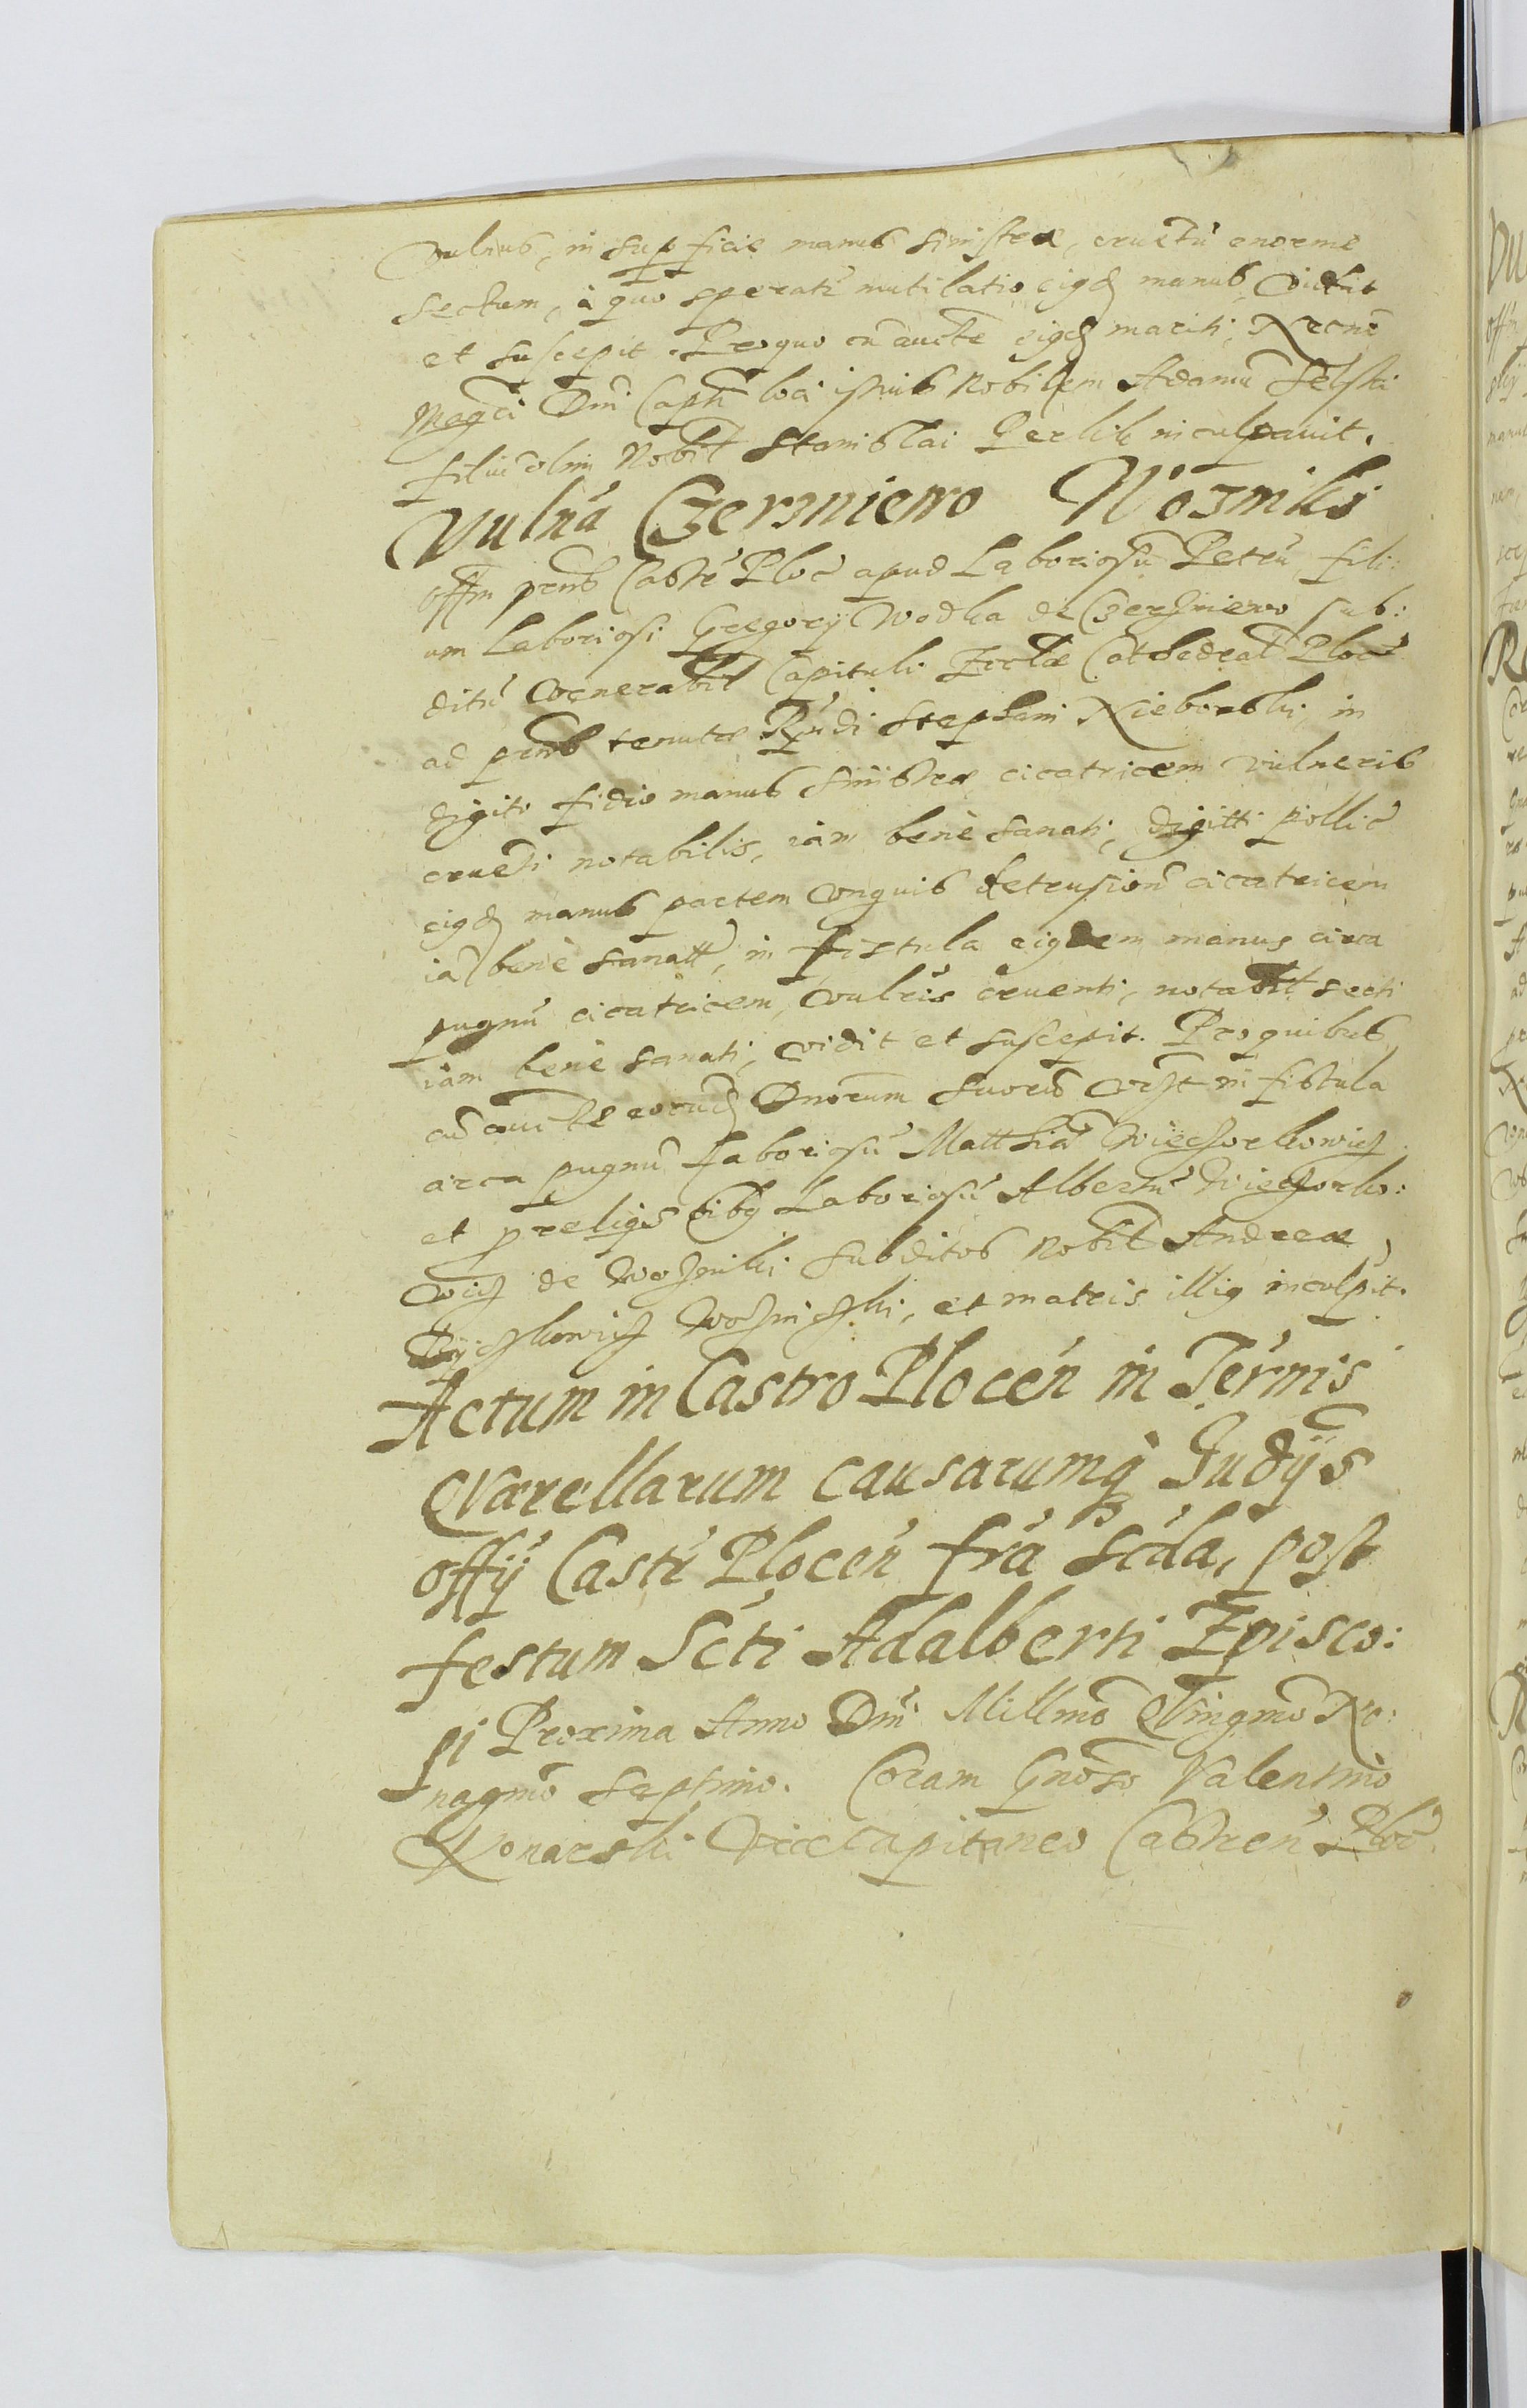 vulnus, in supficie manus sinistræ, cruetū enorme
sectum, à quo speratr mutilatio eigd manus, vidit
et suscepit. Pro quo cū aucte eigd mariti, Necnō
Magci Dni Capti loci istius Nobilem Adamū
filiū olim Nobil Stanislai Perlik inculpavit.
Vulnā Czerzniewo Woznikj
Offm pnns Castr Ploc apud Laboriosū Petrū fili:
um Laboriosi Gregorij Wodka de Czerzniewo sub:
ditū Venerabil Capituli Ecclæ Cathedral Ploc
ad pnns tenutæ Rndi Stephani Nieborski, in
digiti manus sinistræ cicatricem vulneris
cruēti notabilis, iam bene sanati, digitti pollic
eigd manus partem unguis detrusionē cicatricem
iā bene sanatē, in fistula eigdem manus circa
pugnū cicatricem, vulnis cruenti, notabil secti
iam bene sanati, vidit et suscepit. Pro quibus
cū aucte eorūd Dnorum suorū in fistula
circa pugnū Laboriosū Matthiā Wieczorkowicz
et p reliqs Laboriosū Albertū Wieczorko:
wicz de Wozniki subditos Nobil Andreæ
Wozniczki, et matris illig inculpit.
Actum in Castro Plocen in Termis
Qværellarum causarumq Judÿs
offÿ Castr Plocen frā scdā, post
festum Scti Adalberti Episco:
pi Proxima Anno Dni Millmō Qvingmō No:
nagmō septimo. Coram Gnoso Valentino
Konarski Vicecapitaneo Castren Ploc